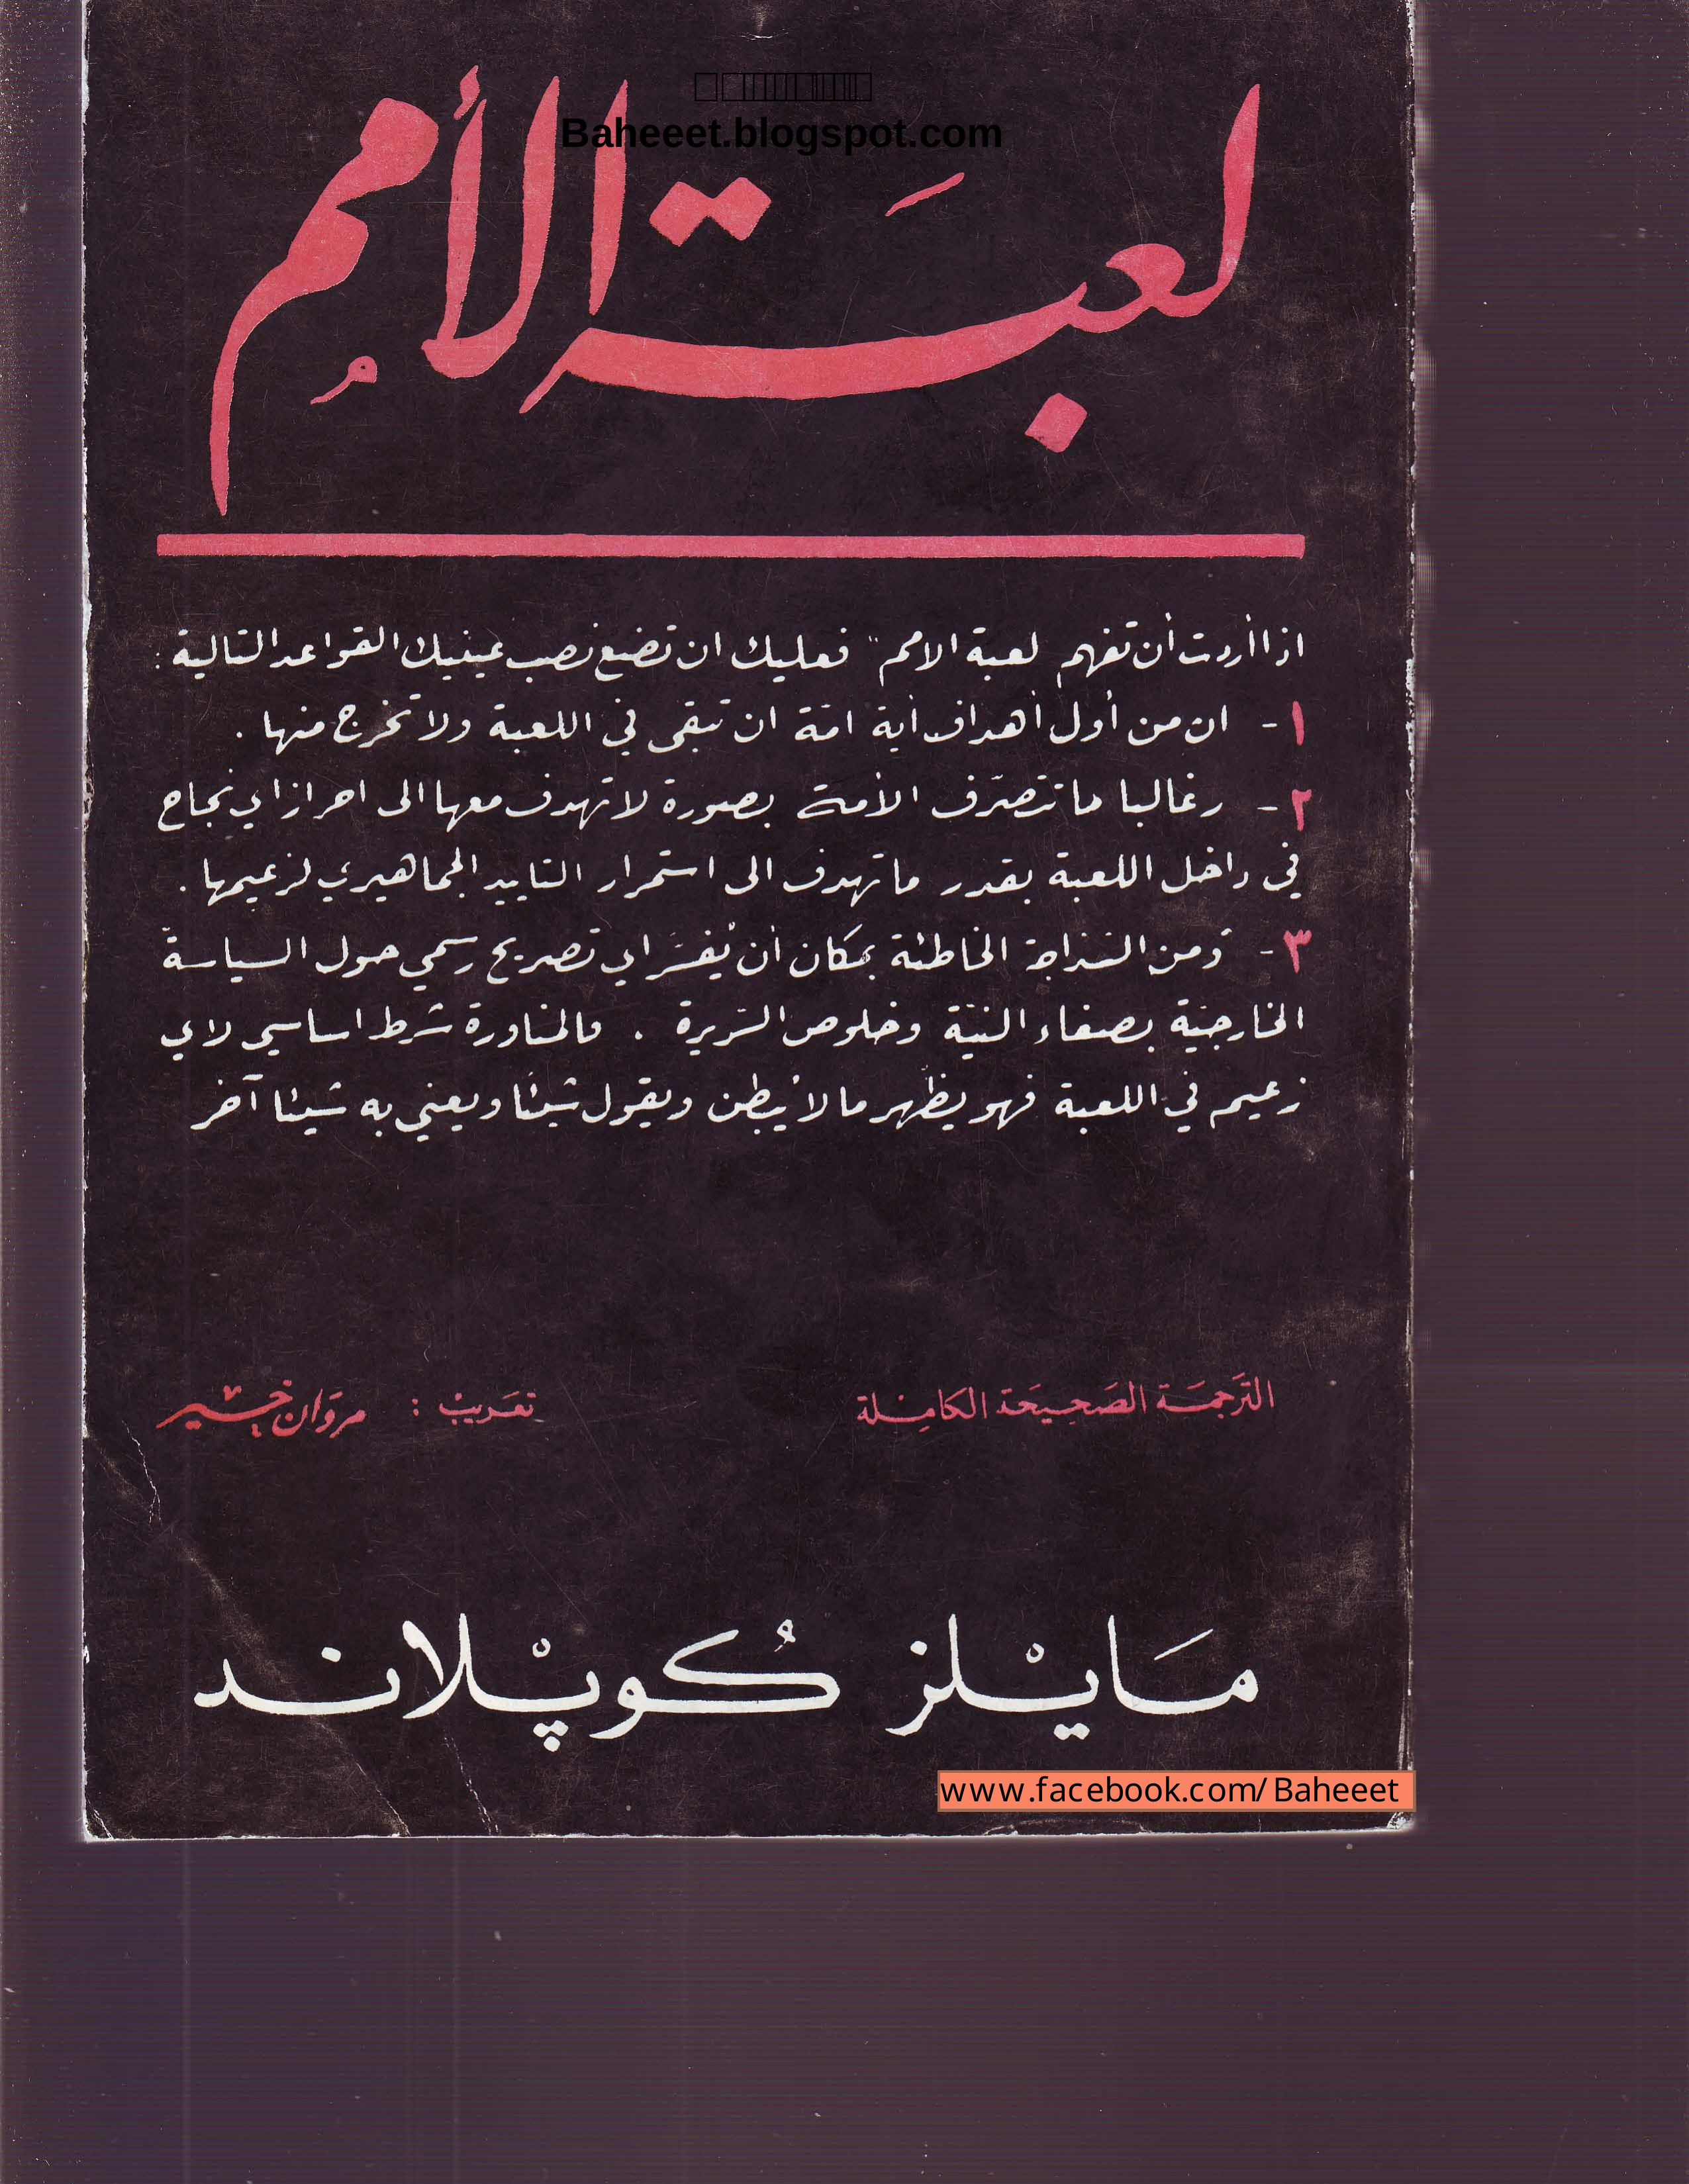 Baheeet.blogspot.com
لعبَة الأمم
اذا أردت أن تفهم لعبة الامم" فعليك ان تضع نصب عينيك القواعد التالية :
١- ان من أول أهداف أية امّة ان تبقى في اللعبة ولا تخرج منها .
٢- وغالبا ما تتصرّف الأمة بصورة لا تهدف معها الى احراز اي نجاح
في داخل اللعبة بقدر ما تهدف الى استمرار التاييد الجماهيري لزعيمها .
٣- ومن السّذاجة الخاطئة بمكان أن يُفسَّر اي تصريح رسمي حول السياسة
الخارجيّة بصفاء النيّة وخلوص السّريرة . فالمناورة شرط اساسي لاي
زعيم في اللعبة فهو يظهر ما لا يُبطن ويقول شيئًا ويعني به شيئا آخر
الترَجمَة الصَحِيحَة الكامِلة تعَريبْ : مروَان خير
مَايْلز كُوپْلاند
www.facebook.com/Baheeet